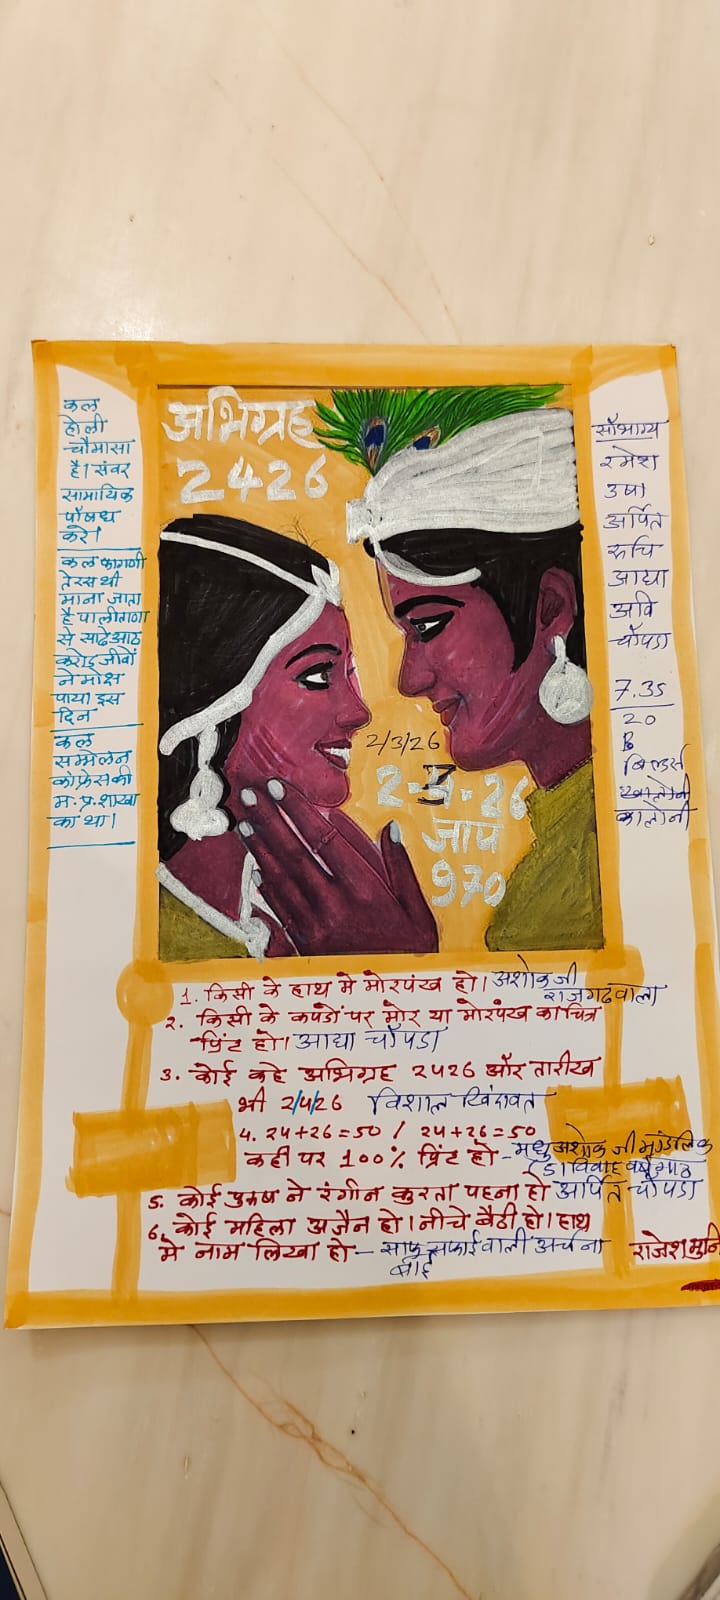 अभिग्रह
2426
कल
होली
चौमासा
है। संवर
सामायिक
पौषध
करे।
कल फागणी
तेरस थी
माना जाता
है पालीताणा
से साढे आठ
करोड़ जीवों
ने मोक्ष
पाया इस
दिन
कल
सम्मेलन
कांफ्रेस की
म.प्र. शाखा
का था।
सौभाग्य
रमेश
उषा
अर्पित
रुचि
आद्या
अवि
चौपडा
7.35
20
B
बिल्डर्स
कालोनी
2/3/26
2-3-26
जाप
970
1. किसी के हाथ मे मोरपंख हो। अशोक जी
राजगढवाला
2. किसी के कपडों पर मोर या मोरपंख का चित्र
प्रिंट हो। आद्या चौपडा
3. कोई कहे अभिग्रह 2426 और तारीख
भी 2/4/26 विशाल खिंदावत
4. 24+26=50 / 24+26=50
कहीं पर 100% प्रिंट हो - मधु अशोक जी मुंडलिक
विवाह वर्षगाठ
5. कोई पुरुष ने रंगीन कुरता पहना हो अर्पित चौपडा
6. कोई महिला अजैन हो। नीचे बैठी हो। हाथ
मे नाम लिखा हो - साफ सफाई वाली अर्चना
बाई
राजेश मुनि